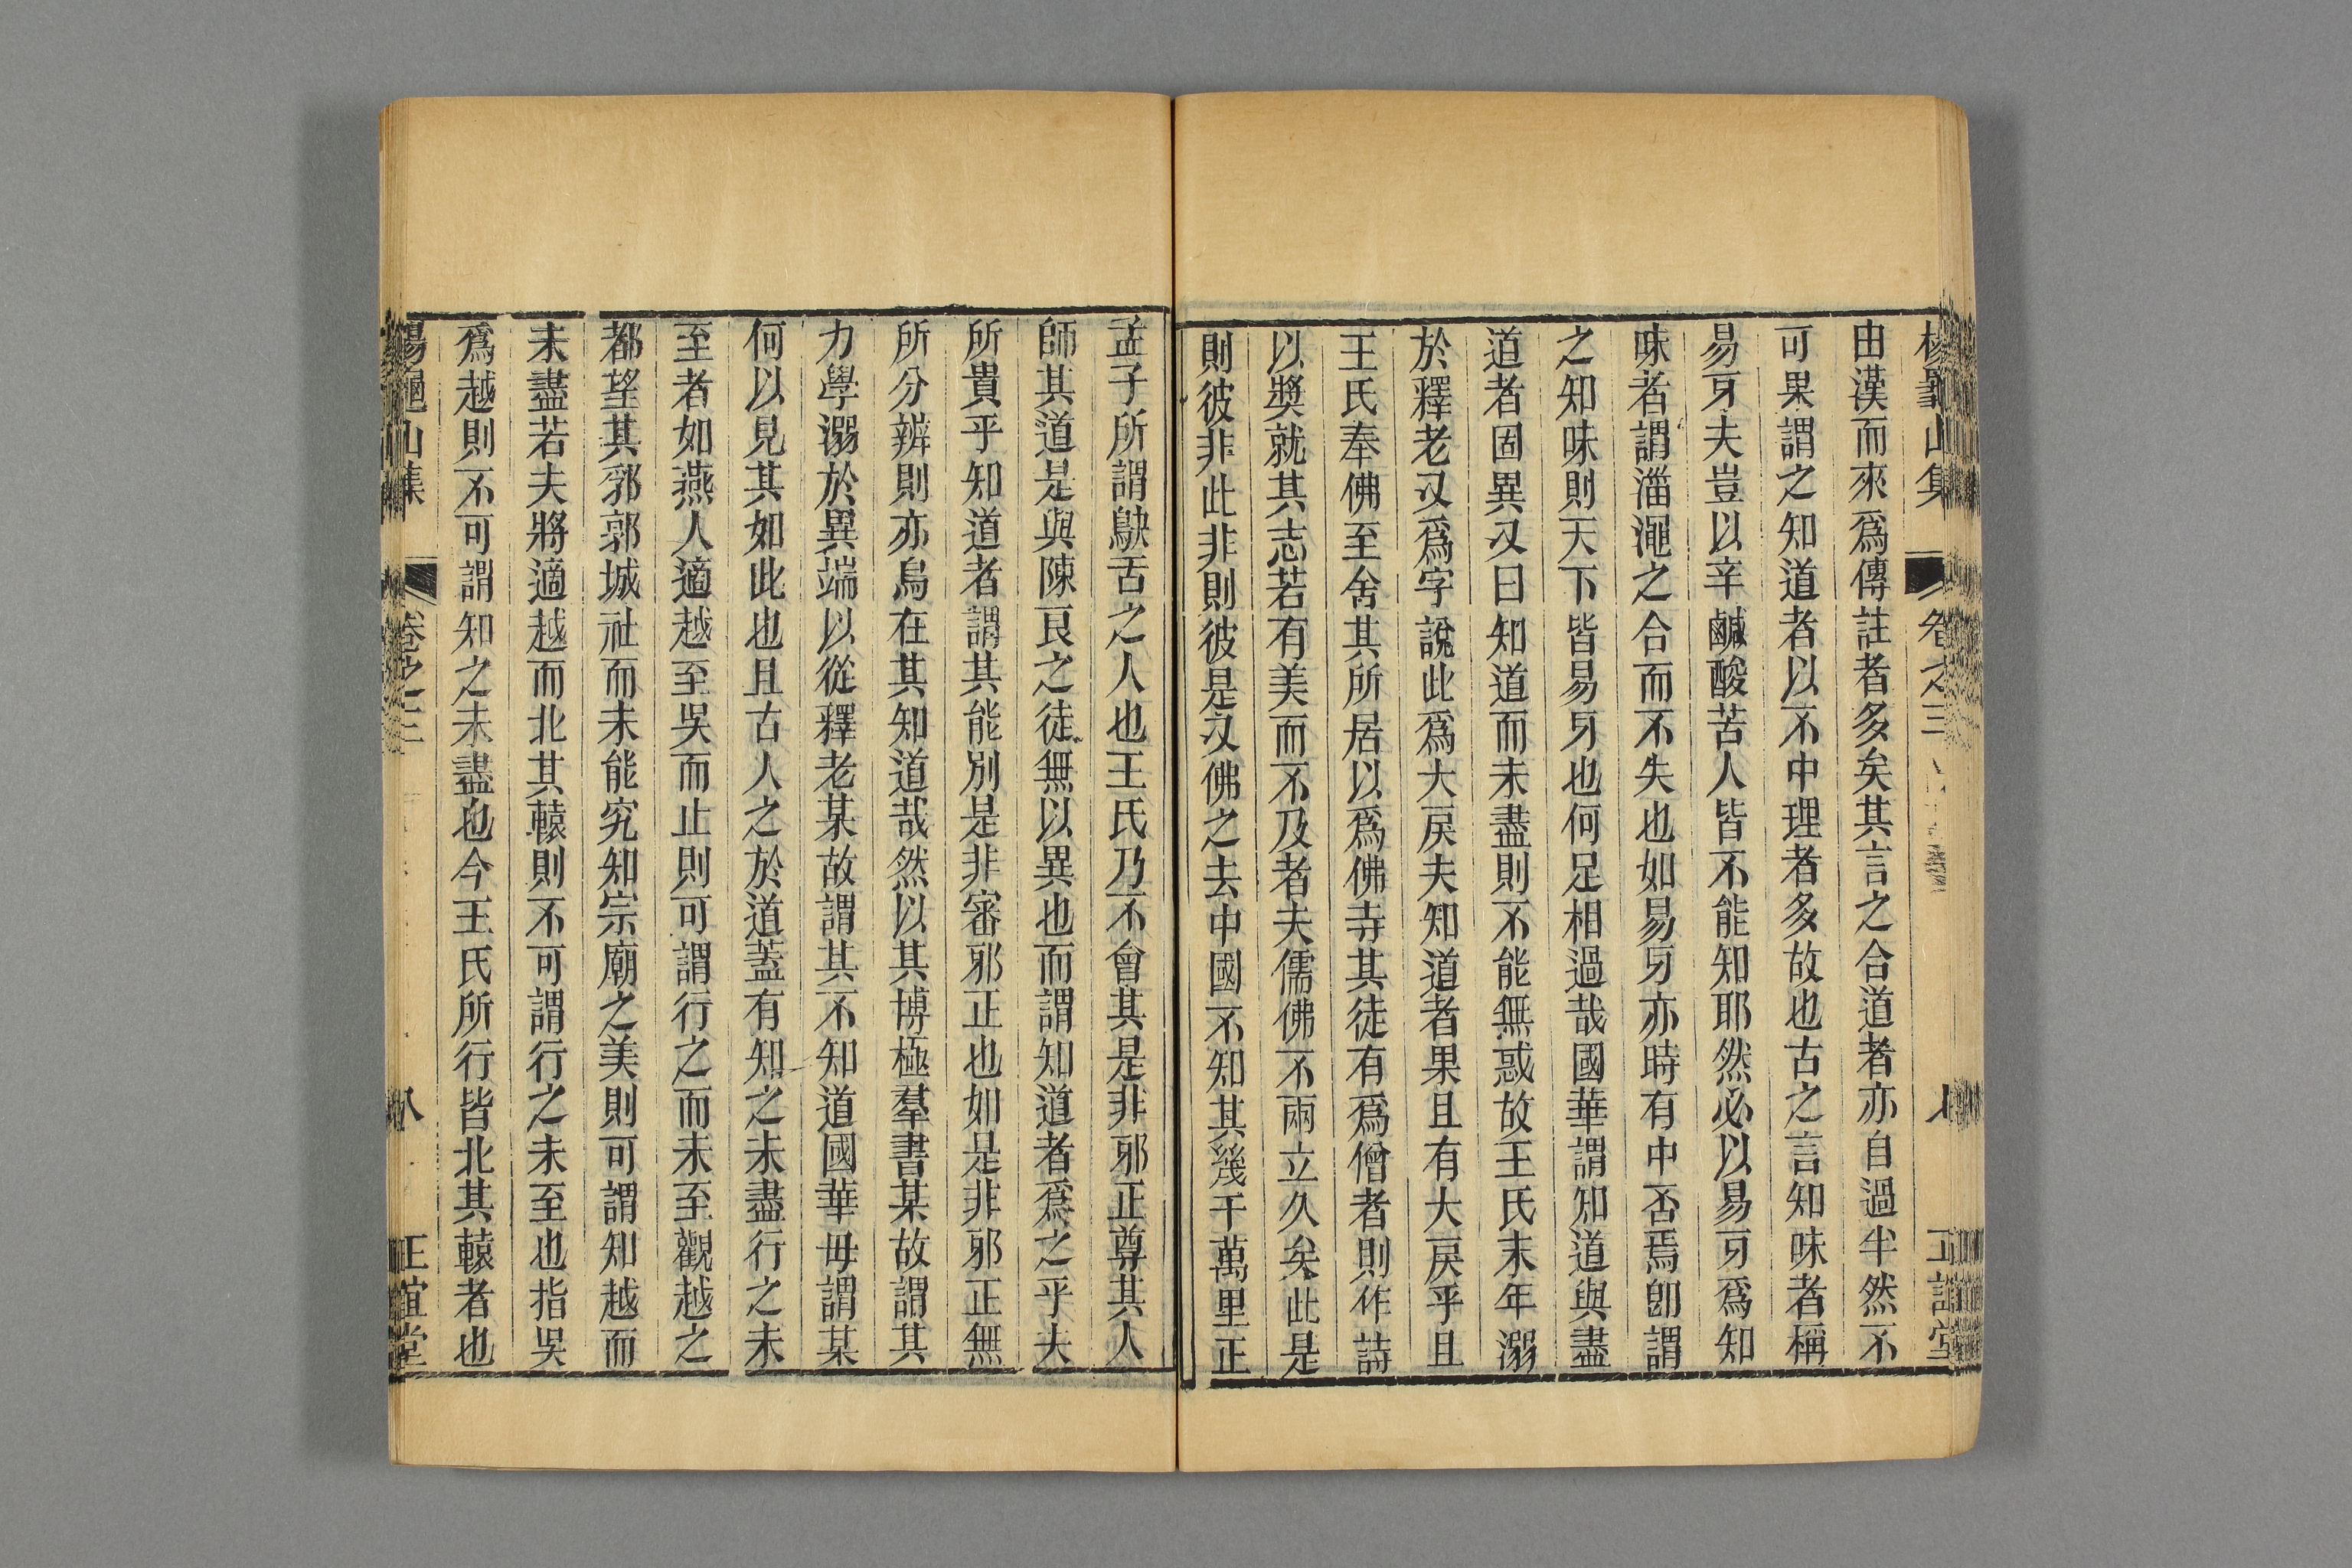 由漢而來爲傳註者多矣其言之合道者亦自過半然不
可果謂之知道者以不中理者多故也古之言知味者稱
易牙夫豈以辛鹹酸苦人皆不能知耶然必以易牙爲知
味者謂淄澠之合而不失也如易牙亦時有中否焉卽謂
之知味則天下皆易牙也何足相過哉國華謂知道與盡
道者固異又曰知道而未盡則不能無惑故王氏末年溺
於釋老又爲字說此爲大戾夫知道者果且有大戾乎且
王氏奉佛至舍其所居以爲佛寺其徒有爲僧者則作詩
以獎就其志若有美而不及者夫儒佛不兩立久矣此是
則彼非此非則彼是又佛之去中國不知其幾千萬里正
孟子所謂鴃舌之人也王氏乃不會其是非邪正尊其人
師其道是與陳良之徒無以異也而謂知道者爲之乎夫
所貴乎知道者謂其能別是非審邪正也如是非邪正無
所分辨則亦烏在其知道哉然以其博極羣書某故謂其
力學溺於異端以從釋老某故謂其不知道國華毋謂某
何以見其如此也且古人之於道蓋有知之未盡行之未
至者如燕人適越至吳而止則可謂行之而未至觀越之
都望其郛郭城社而未能究知宗廟之美則可謂知越而
未盡若夫將適越而北其轅則不可謂行之未至也指吳
爲越則不可謂知之未盡也今王氏所行皆北其轅者也
楊龜山集 卷之三 八 正誼堂